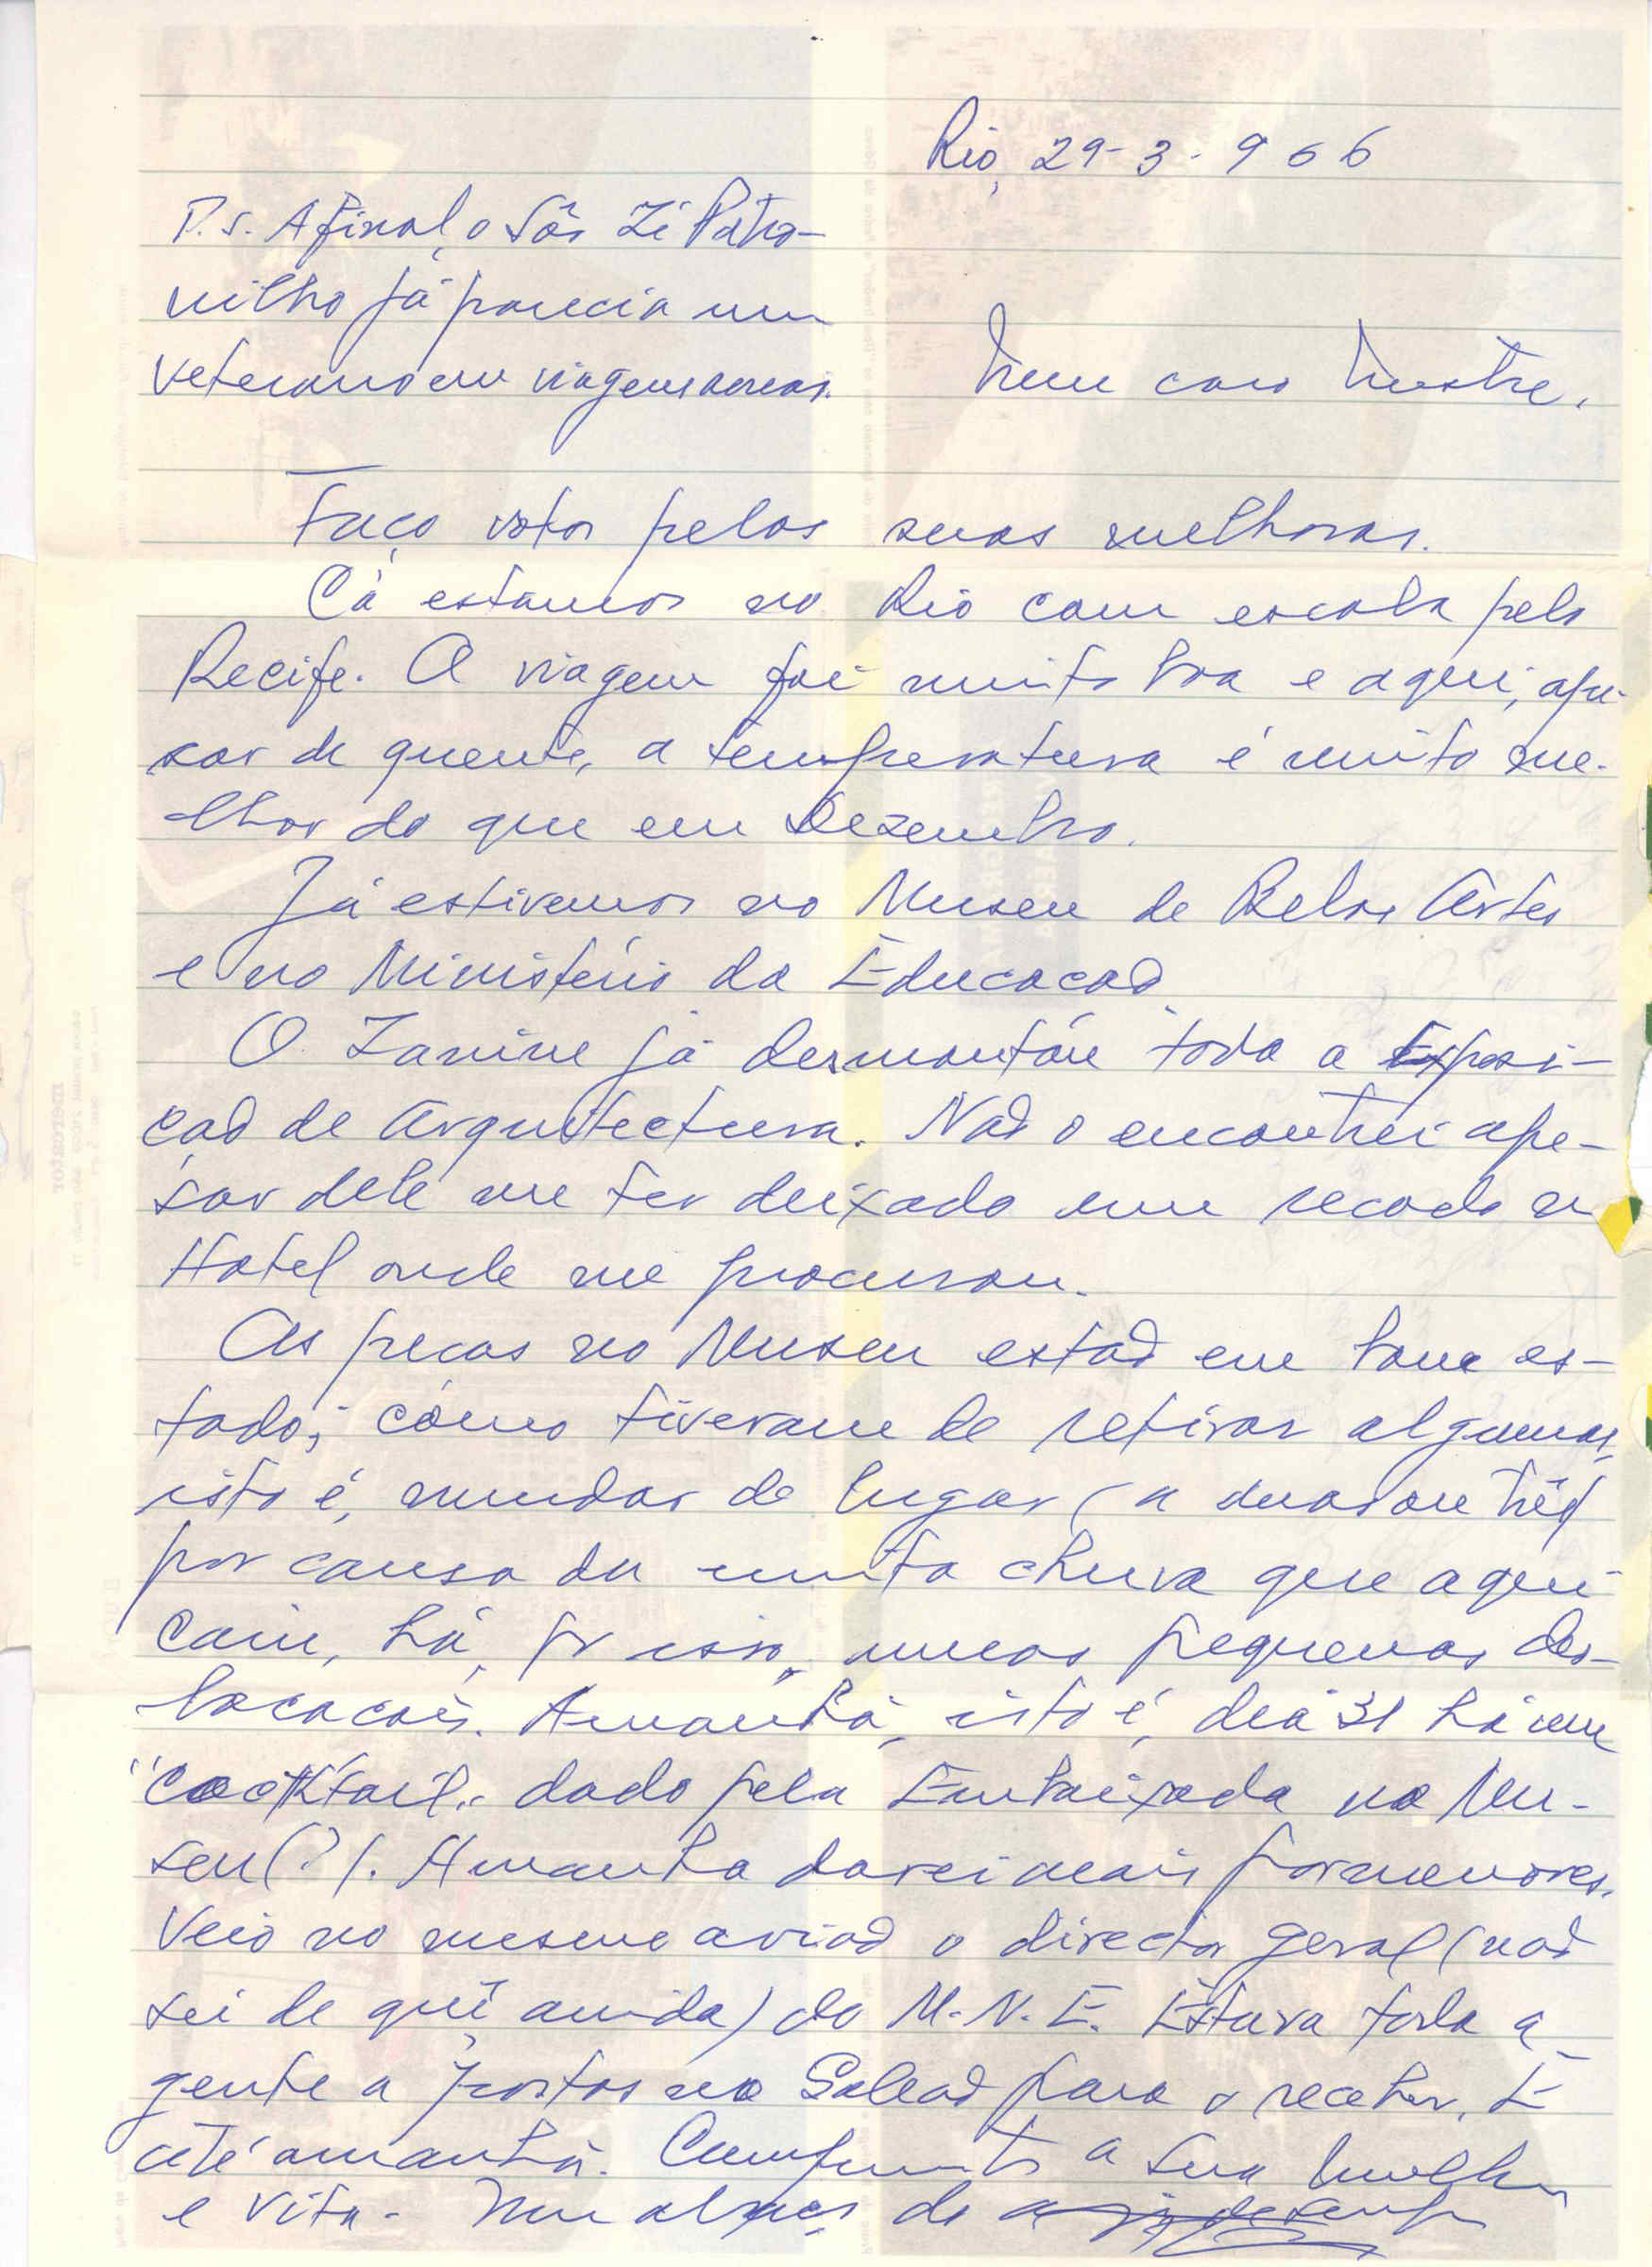 Rio, 29-3-966
P.S. Afinal, o Sôr Zé Petro-
nilho já parecia um
veterano em viagens aereas.
Meu caro Mestre,
Faço votos pelas suas melhoras.
Cá estamos no Rio com escala pelo
Recife. A viagem foi muito boa e aqui, ape-
sar de quente, a temperatura é muito me-
lhor do que em Dezembro.
Já estivemos no Museu de Belas Artes
e no Ministério da Educação
O Zanine já desmontou toda a Exposi-
ção de Arquitectura. Não o encontrei ape-
sar dele me ter deixado um recado no
Hotel onde me procurou.
As peças no Museu estão em bom es-
tado; como tiveram de retirar algumas,
isto é, mudar de lugar (a duas ou três)
por causa da muita chuva que aqui
caiu, há, por isso, umas pequenas des-
locações. Amanhã, isto é, dia 31 há um
"cocktail" dado pela Embaixada no Mu-
seu(?). Amanhã darei mais pormenores.
Veio no mesmo avião o director geral (não
sei de quê ainda) do M.N.E. Estava toda a
gente a postos no Galeão para o receber. E
até amanhã. Cumprimentos a sua Mulher
e Vita. Um abraço do